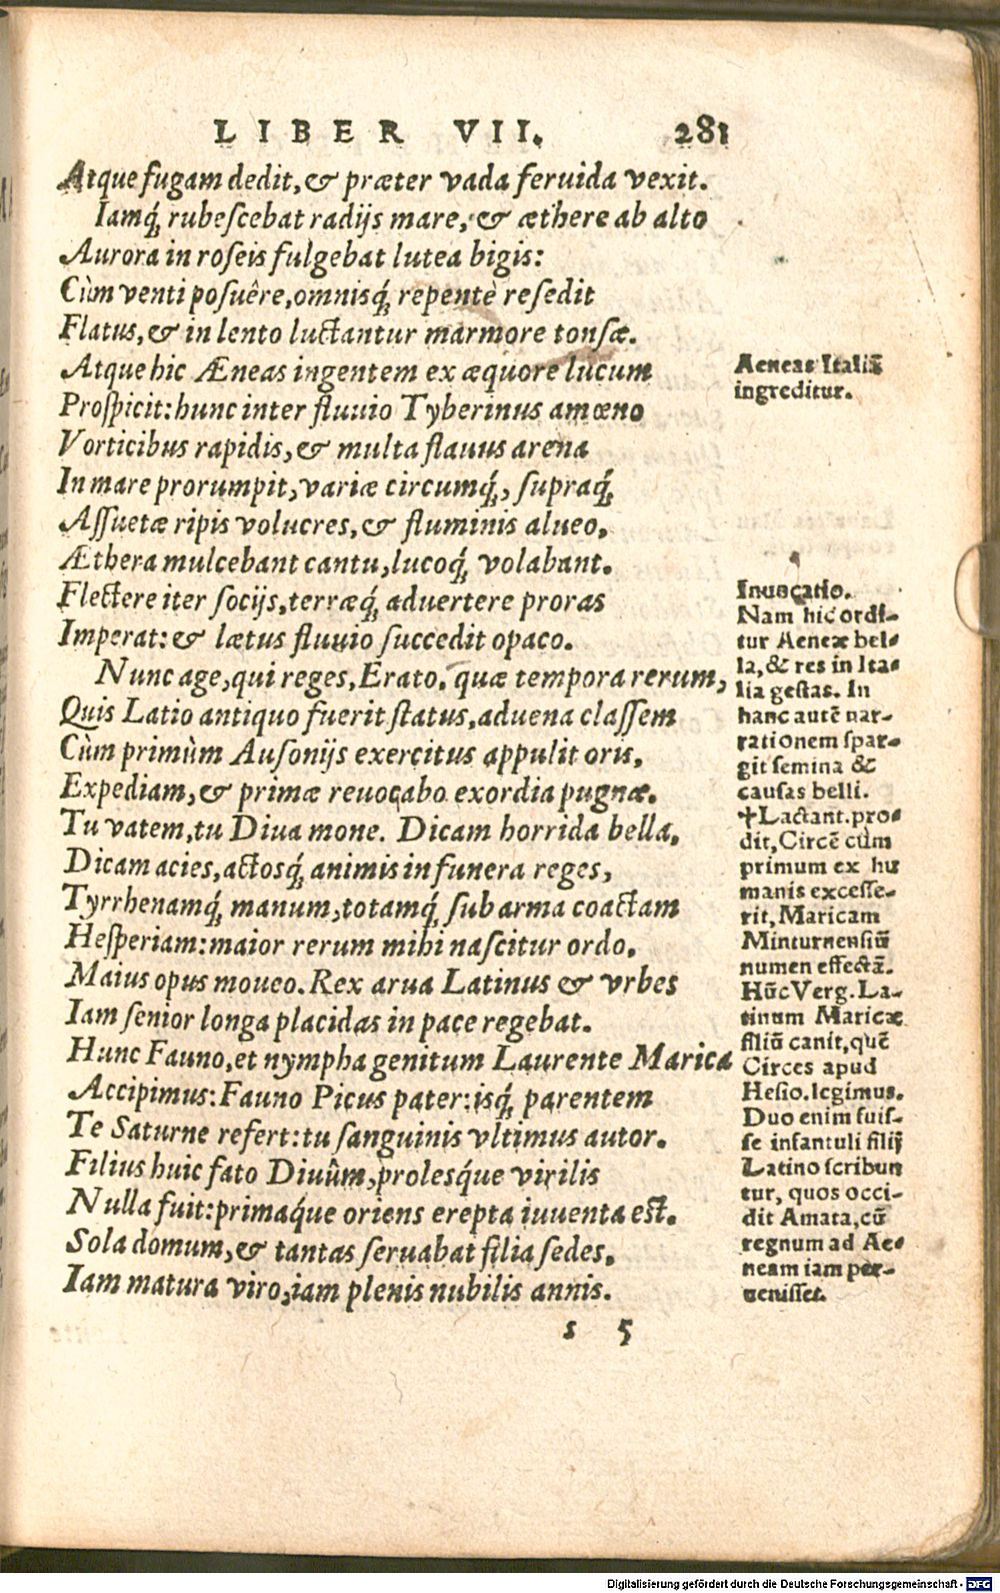 LIBER VII. 281
Atque fugam dedit, & præter vada feruida vexit.
Iamq́; rubescebat radijs mare, & æthere ab alto
Aurora in roseis fulgebat lutea bigis:
Cùm venti posuêre, omnisq́; repentè resedit
Flatus, & in lento luctantur marmore tonsæ.
Atque hic Æneas ingentem ex æquore lucum
Prospicit: hunc inter fluuio Tyberinus amœno
Vorticibus rapidis, & multa flauus arena
In mare prorumpit, variæ circumq́;, supraq́;
Assuetæ ripis volucres, & fluminis alueo,
Æthera mulcebant cantu, lucoq́; volabant.
Flectere iter socijs, terræq́; aduertere proras
Imperat: & lætus fluuio succedit opaco.
Nunc age, qui reges, Erato, quæ tempora rerum,
Quis Latio antiquo fuerit status, aduena classem
Cùm primùm Ausonijs exercitus appulit oris,
Expediam, & primæ reuocabo exordia pugnæ.
Tu vatem, tu Diua mone. Dicam horrida bella,
Dicam acies, actosq́; animis in funera reges,
Tyrrhenamq́; manum, totamq́; sub arma coactam
Hesperiam: maior rerum mihi nascitur ordo.
Maius opus moueo. Rex arua Latinus & vrbes
Iam senior longa placidas in pace regebat.
Hunc Fauno, et nympha genitum Laurente Marica
Accipimus: Fauno Picus pater: isq́; parentem
Te Saturne refert: tu sanguinis vltimus autor.
Filius huic fato Diuûm, prolesq́ue virilis
Nulla fuit: primaq́ue oriens erepta iuuenta est.
Sola domum, & tantas seruabat filia sedes,
Iam matura viro, iam plenis nubilis annis.
s 5
Aeneas Italiā
ingreditur.
Inuocatio.
Nam hic ordi-
tur Aeneæ bel-
la, & res in Ita-
lia gestas. In
hanc autē nar-
rationem spar-
git semina &
causas belli.
✝Lactant. pro-
dit, Circē cùm
primum ex hu
manis excesse-
rit, Maricam
Minturnensiū
numen effectā.
Hūc Verg. La-
tinum Maricæ
filiū canit, quē
Circes apud
Hesio. legimus.
Duo enim fuis-
se infantuli filij
Latino scribun
tur, quos occi-
dit Amata, cū
regnum ad Ae-
neam iam per-
uenisset.
Digitalisierung gefördert durch die Deutsche Forschungsgemeinschaft - DFG